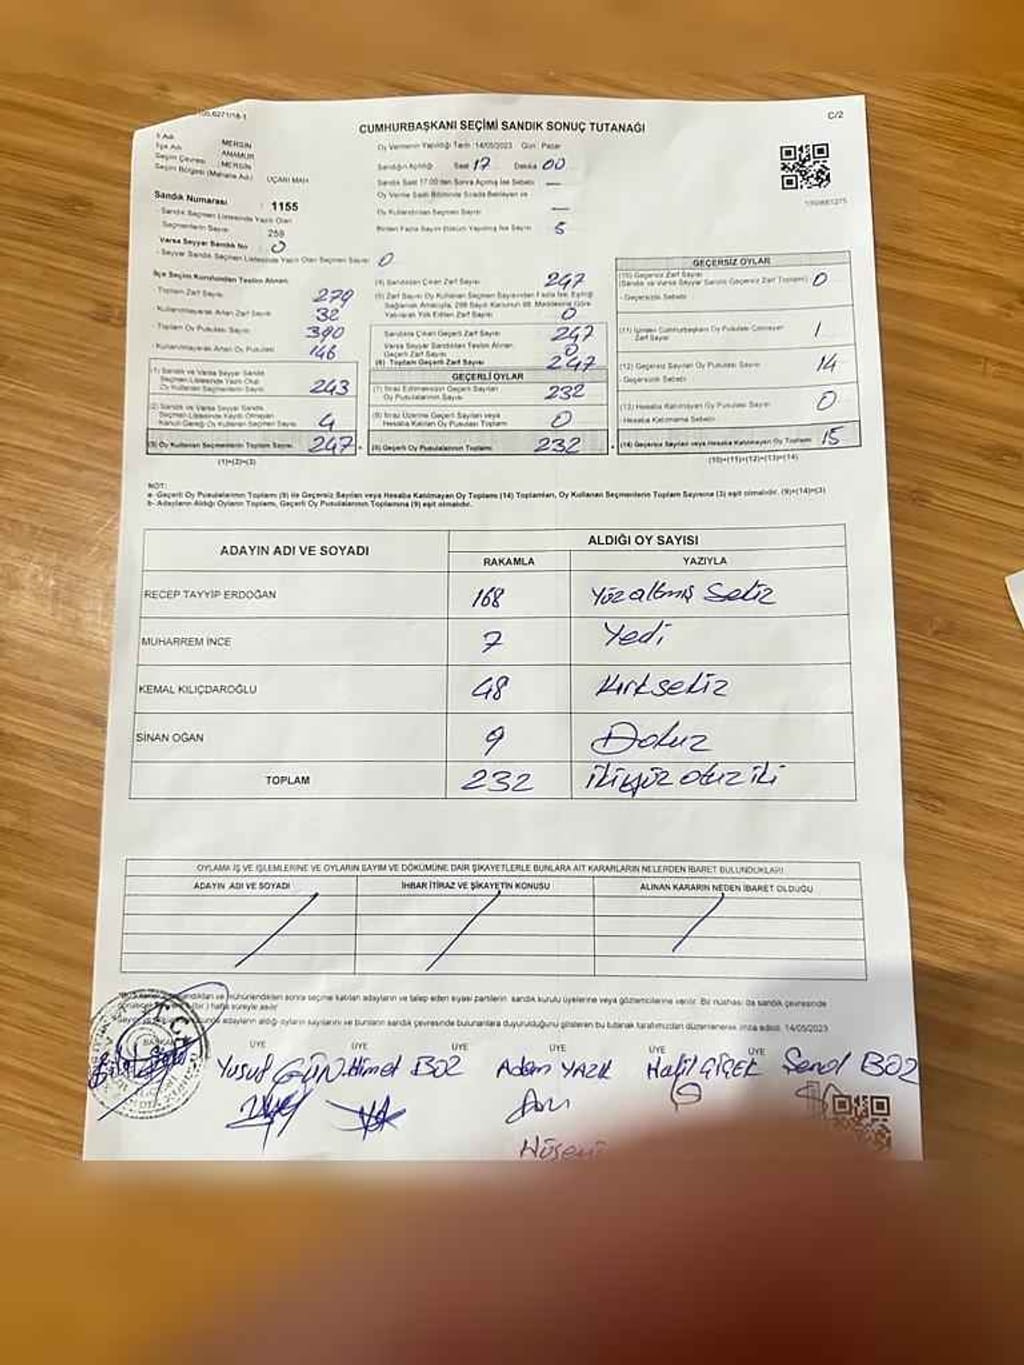 CUMHURBAŞKANI SEÇİMİ SANDIK SONUÇ TUTANAĞI
C/2
İl Adı : MERSİN
İlçe Adı : ANAMUR
Seçim Çevresi : MERSİN
Seçim Bölgesi (Mahalle Adı) : UÇARI MAH.
Oy Vermenin Yapıldığı Tarih :14/05/2023 Gün : Pazar
Sandığın Açıldığı Saat 17 Dakika 00
Sandık Saat 17.00'den Sonra Açılmış İse Sebebi —
Oy Verme Saati Bitiminde Sırada Bekleyen ve
Oy Kullandırılan Seçmen Sayısı —
Birden Fazla Sayım Döküm Yapılmış İse Sayısı 5
Sandık Numarası : 1155
- Sandık Seçmen Listesinde Yazılı Olan
Seçmenlerin Sayısı 259
Varsa Seyyar Sandık No 0
- Seyyar Sandık Seçmen Listesinde Yazılı Olan Seçmen Sayısı 0
İlçe Seçim Kurulundan Teslim Alınan:
- Toplam Zarf Sayısı 279
- Kullanılmayarak Artan Zarf Sayısı 32
- Toplam Oy Pusulası Sayısı 390
- Kullanılmayarak Artan Oy Pusulası 146
(1) Sandık ve Varsa Seyyar Sandık
Seçmen Listesinde Yazılı Olup
Oy Kullanan Seçmenlerin Sayısı 243
(2) Sandık ve Varsa Seyyar Sandık
Seçmen Listesinde Kayıtlı Olmayan
Kanun Gereği Oy Kullanan Seçmen Sayısı 4
(3) Oy Kullanan Seçmenlerin Toplam Sayısı 247
(1)+(2)=(3)
(4) Sandıktan Çıkan Zarf Sayısı 247
(5) Zarf Sayısı Oy Kullanan Seçmen Sayısından Fazla İse, Eşitliği
Sağlamak Amacıyla, 298 Sayılı Kanunun 98. Maddesine Göre
Yakılarak Yok Edilen Zarf Sayısı 0
Sandıkta Çıkan Geçerli Zarf Sayısı 247
Varsa Seyyar Sandıktan Teslim Alınan
Geçerli Zarf Sayısı 0
(6) Toplam Geçerli Zarf Sayısı 247
GEÇERLİ OYLAR
(7) İtiraz Edilmeksizin Geçerli Sayılan
Oy Pusulalarının Sayısı 232
(8) İtiraz Üzerine Geçerli Sayılan veya
Hesaba Katılan Oy Pusulası Toplamı 0
(9) Geçerli Oy Pusulalarının Toplamı 232
GEÇERSİZ OYLAR
(10) Geçersiz Zarf Sayısı
(Sandık ve Varsa Seyyar Sandık Geçersiz Zarf Toplamı) 0
- Geçersizlik Sebebi
(11) İçinden Cumhurbaşkanı Oy Pusulası Çıkmayan
Zarf Sayısı 1
(12) Geçersiz Sayılan Oy Pusulası Sayısı 14
- Geçersizlik Sebebi
(13) Hesaba Katılmayan Oy Pusulası Sayısı 0
- Hesaba Katılmama Sebebi
(14) Geçersiz Sayılan veya Hesaba Katılmayan Oy Toplamı 15
(10)+(11)+(12)+(13)=(14)
NOT:
a- Geçerli Oy Pusulalarının Toplamı (9) ile Geçersiz Sayılan veya Hesaba Katılmayan Oy Toplamı (14) Toplamları, Oy Kullanan Seçmenlerin Toplam Sayısına (3) eşit olmalıdır. (9)+(14)=(3)
b- Adayların Aldığı Oyların Toplamı, Geçerli Oy Pusulalarının Toplamına (9) eşit olmalıdır.
ADAYIN ADI VE SOYADI
ALDIĞI OY SAYISI
RAKAMLA YAZIYLA
RECEP TAYYİP ERDOĞAN 168 Yüzaltmış Sekiz
MUHARREM İNCE 7 Yedi
KEMAL KILIÇDAROĞLU 48 Kırksekiz
SİNAN OĞAN 9 Dokuz
TOPLAM 232 ikiyüz otuz iki
OYLAMA İŞ VE İŞLEMLERİNE VE OYLARIN SAYIM VE DÖKÜMÜNE DAİR ŞİKAYETLERLE BUNLARA AİT KARARLARIN NELERDEN İBARET BULUNDUKLARI
ADAYIN ADI VE SOYADI
İHBAR İTİRAZ VE ŞİKAYETİN KONUSU
ALINAN KARARIN NEDEN İBARET OLDUĞU
sonra seçime katılan adayların ve talep eden siyasi partilerin, sandık kurulu üyelerine veya gözlemcilerine verilir. Bir nüshası da sandık çevresinde
hafta süreyle asılır.
adayların aldığı oyların sayılarını ve bunların sandık çevresinde bulunanlara duyurulduğunu gösteren bu tutanak tarafımızdan düzenlenerek imza edildi. 14/05/2023
BAŞKAN ÜYE ÜYE ÜYE ÜYE ÜYE ÜYE
Yusuf GÜN Himet BOZ Adem YAZIK Halil ÇİÇEK Senol BOZ
T.C.